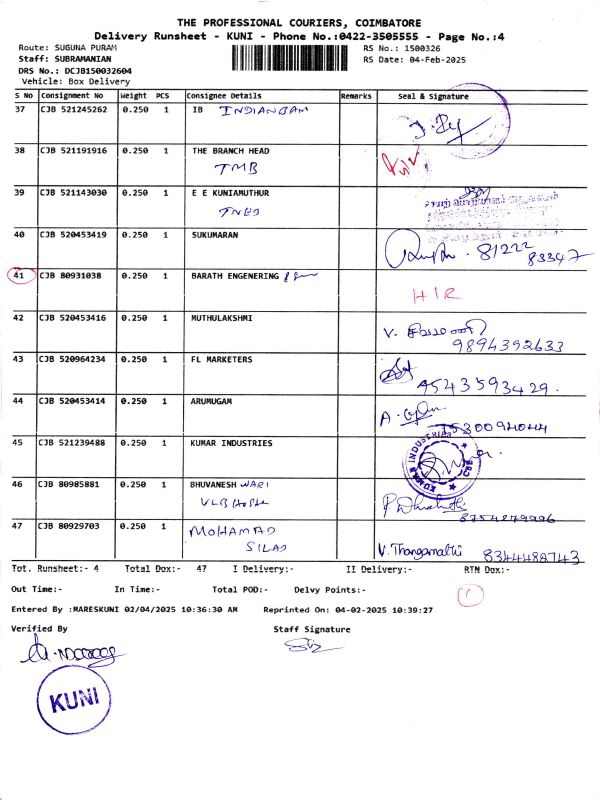 THE PROFESSIONAL COURIERS, COIMBATORE
Delivery Runsheet - KUNI - Phone No.:0422-3505555 - Page No.:4
Route: SUGUNA PURAM RS No.: 1500326
Staff: SUBRAMANIAN RS Date: 04-Feb-2025
DRS No.: DCJB150032604
Vehicle: Box Delivery
S No Consignment No Weight PCS Consignee Details Remarks Seal & Signature
37 CJB 521245262 0.250 1 IB
38 CJB 521191916 0.250 1 THE BRANCH HEAD
TMB
39 CJB 521143030 0.250 1 E E KUNIAMUTHUR
TNEB
40 CJB 520453419 0.250 1 SUKUMARAN 81222
83347
41 CJB 80931038 0.250 1 BARATH ENGENERING
H I R
42 CJB 520453416 0.250 1 MUTHULAKSHMI V.
9894392633
43 CJB 520964234 0.250 1 FL MARKETERS
9543593429.
44 CJB 520453414 0.250 1 ARUMUGAM A.
45 CJB 521239488 0.250 1 KUMAR INDUSTRIES KUMAR INDUSTRIES CBE
46 CJB 80985881 0.250 1 BHUVANESH WARI
VLB
8754879996
47 CJB 80929703 0.250 1 MOHAMAD
V. Thangamathi 8344488743
Tot. Runsheet:- 4 Total Dox:- 47 I Delivery:- II Delivery:- RTN Dox:-
Out Time:- In Time:- Total POD:- Delvy Points:- 1
Entered By :MARESKUNI 02/04/2025 10:36:30 AM Reprinted On: 04-02-2025 10:39:27
Verified By Staff Signature
KUNI